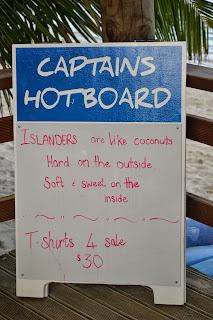 CAPTAINS
HOTBOARD
ISLANDERS are like coconuts
Hard on the outside
Soft & sweet on the
inside
T-shirts 4 sale
$30